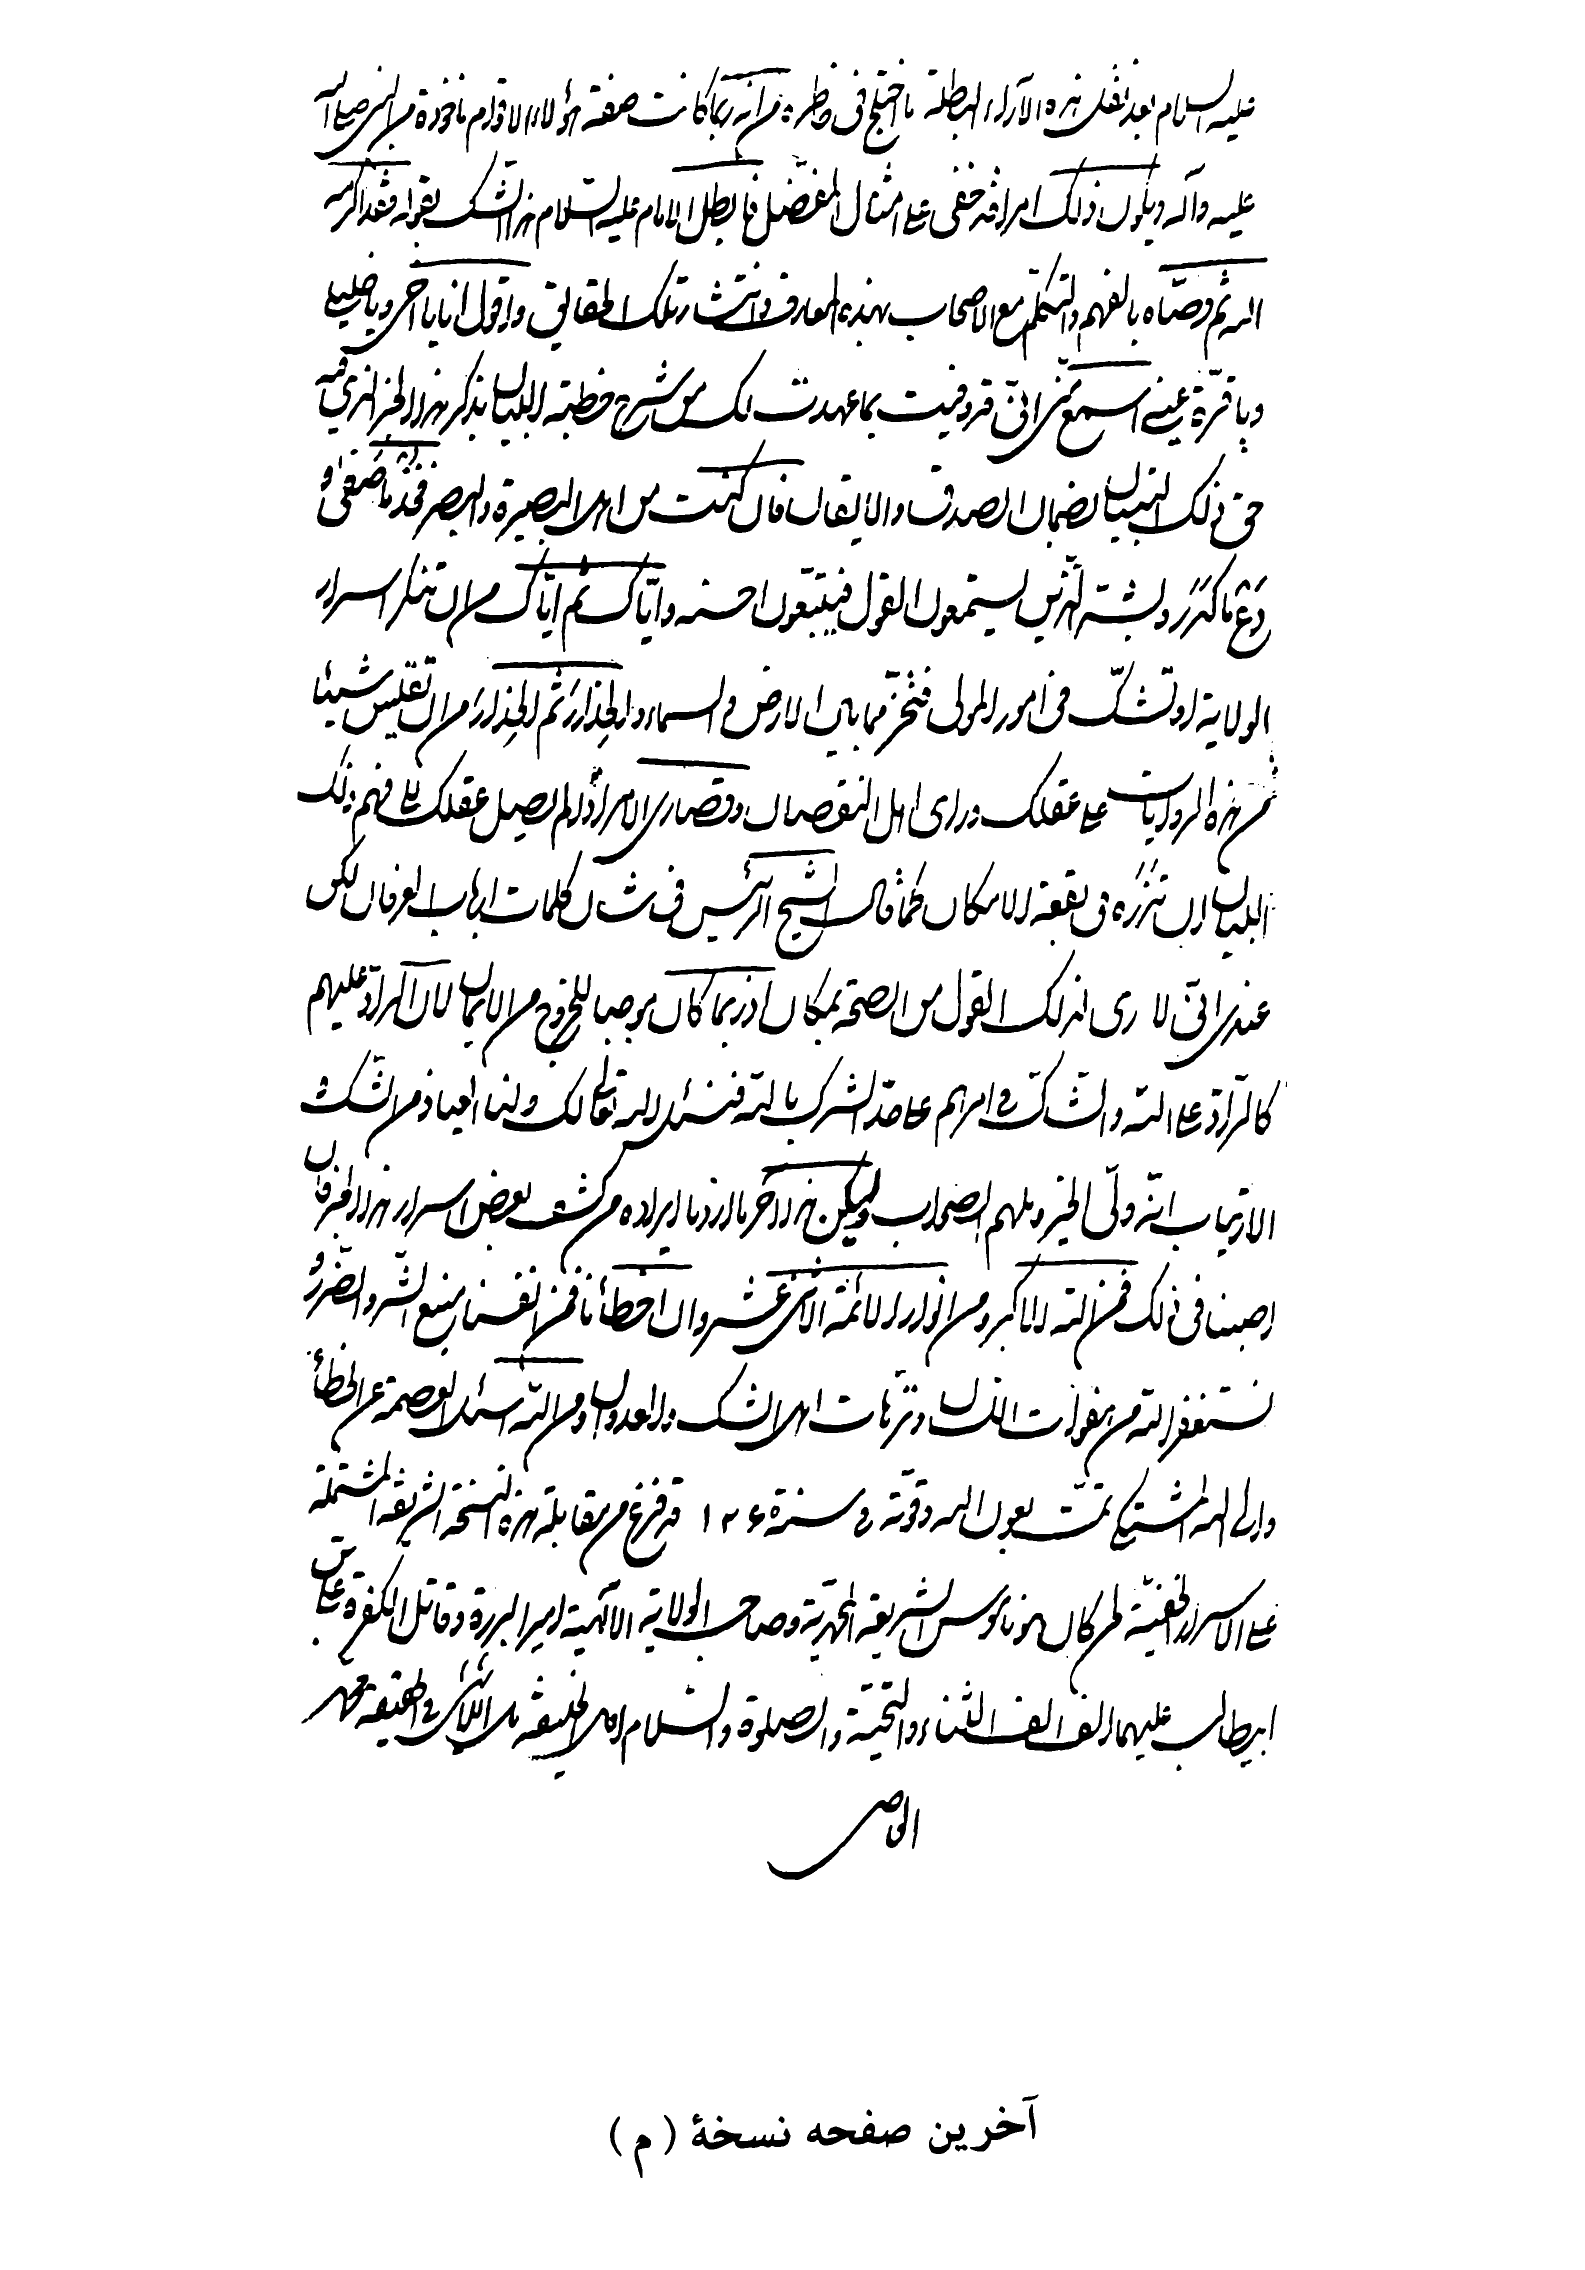 عليه السلام بعد نقل هذه الآراء الباطلة ما اختلج فى خاطره من انه ربما كانت صفة هؤلاء الاقوام مأخوذة من النبى صلى الله
عليه وآله ويكون ذلك امرا قد خفى على امثال المفضّل فابطل الامام عليه السّلام هذا الشّك بقوله فقد اكرمه
الله ثم وصّاه بالفهم والتكلّم مع الاصحاب بهذه المعارف وانتشار تلك الحقايق واقول انا يا اخى ويا خليلى
ويا قرّة عينى اسمع منّى انّى قد وفيت بما عهدت لك من شرح خطبة البيان بذكر هذا الخبر الذى فيه
حق ذلك التبيان بضمان الصدق والايقان فان كنت من اهل البصيرة والبصر فخذ ما صفى و
دع ما كدر وبشّر الّذين يستمعون القول فيتّبعون احسنه وايّاك ثم ايّاك من ان تنكر اسرار
الولاية او تشكّ فى امور المولى فتخرّ مما بين الارض و السماء والحذار ثم الحذار من ان تقيس شيئا
من هذه الروايات على عقلك وراى اهل النقصان وقصارى الامر اذا لم يصل عقلك الى فهم ذلك
البيان ان تذره فى بقعة الامكان كما قال الشيخ الرئيس فى شان كلمات ارباب العرفان لكن
عندى انّى لا ارى لذلك القول من الصحة بمكان اذ ربما كان موجبا للخروج من الايمان لان الرادّ عليهم
كالرّادّ على الله والشّاكّ فى امرهم على حدّ الشرك بالله فنسئل الله تعالى لك ولنا العياذ من الشّك و
الارتياب انّه ولىّ الخير وملهم الصواب وليكن هذا آخر ما اردنا ايراده من كشف بعض اسرار هذا الخبر فان
اصبنا فى ذلك فمن الله الاكبر ومن انوار الائمة الاثنى عشر وان اخطأنا فمن انفسنا منبع الشّر والضّرر و
نستغفر الله من هفوات اللسان وترّهات اهل الشك والعدوان ومن الله اسئل العصمة عن الخطأ
والى الله المشتكى تمّت بعون الله وقوّته فى سنة ١٢۶ قد فرغ من مقابلة هذه النسخة الشريفة المشتملة
على الاسرار الخفيّة لمن كان هو ناموس الشريعة المحمّدية وصاحب الولاية الالهية امير البررة وقاتل الكفرة على بن
ابيطالب عليهما الف الف الثناء والتحيّة والصلوة والسّلام اقل الخليقة بل اللاشئ فى الحقيقة محمد
آخرين صفحه نسخهٔ (م)